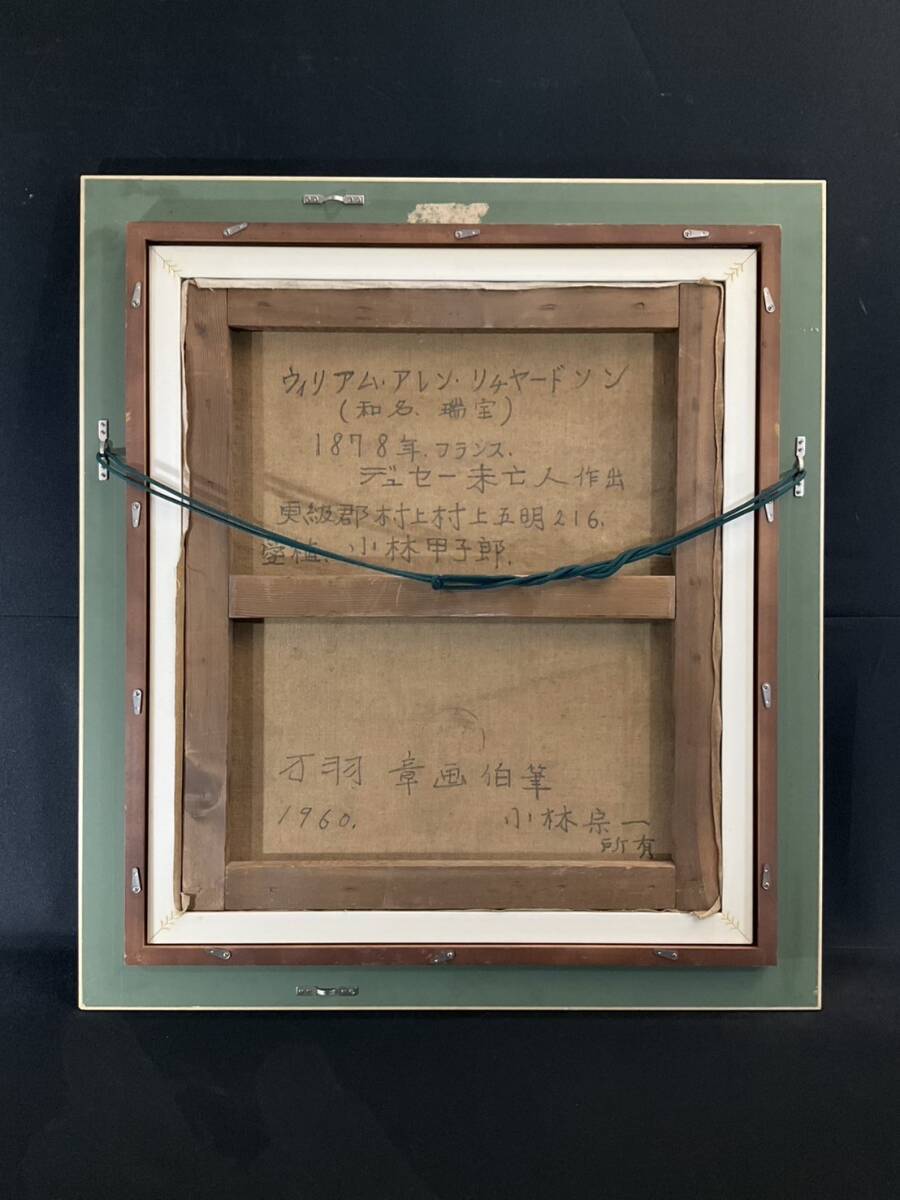 ウィリアム・アレン・リチヤードソン
(和名、瑞宝)
1878年.フランス.
デュセー未亡人作出
更級郡村上村上五明216.
植、小林甲子郎.
万羽 章画伯筆
1960.
小林宗一
所有